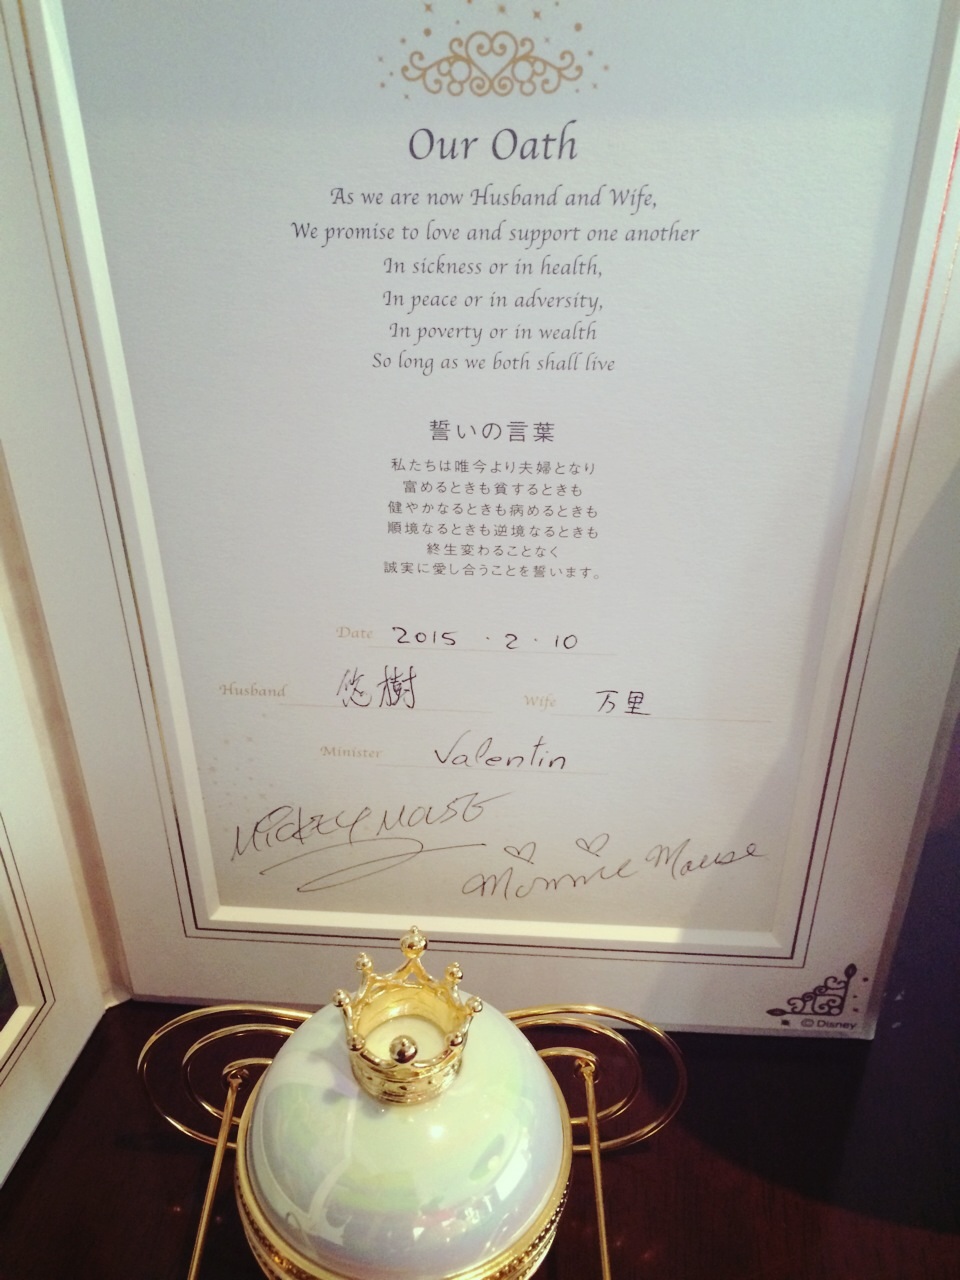 Our Oath
As we are now Husband and Wife,
We promise to love and support one another
In sickness or in health,
In peace or in adversity,
In poverty or in wealth
So long as we both shall live
誓いの言葉
私たちは唯今より夫婦となり
富めるときも貧するときも
健やかなるときも病めるときも
順境なるときも逆境なるときも
終生変わることなく
誠実に愛し合うことを誓います。
Date 2015・2・10
Husband 悠樹 Wife 万里
Minister Valentin
Mickey Mouse
Minnie Mouse
© Disney